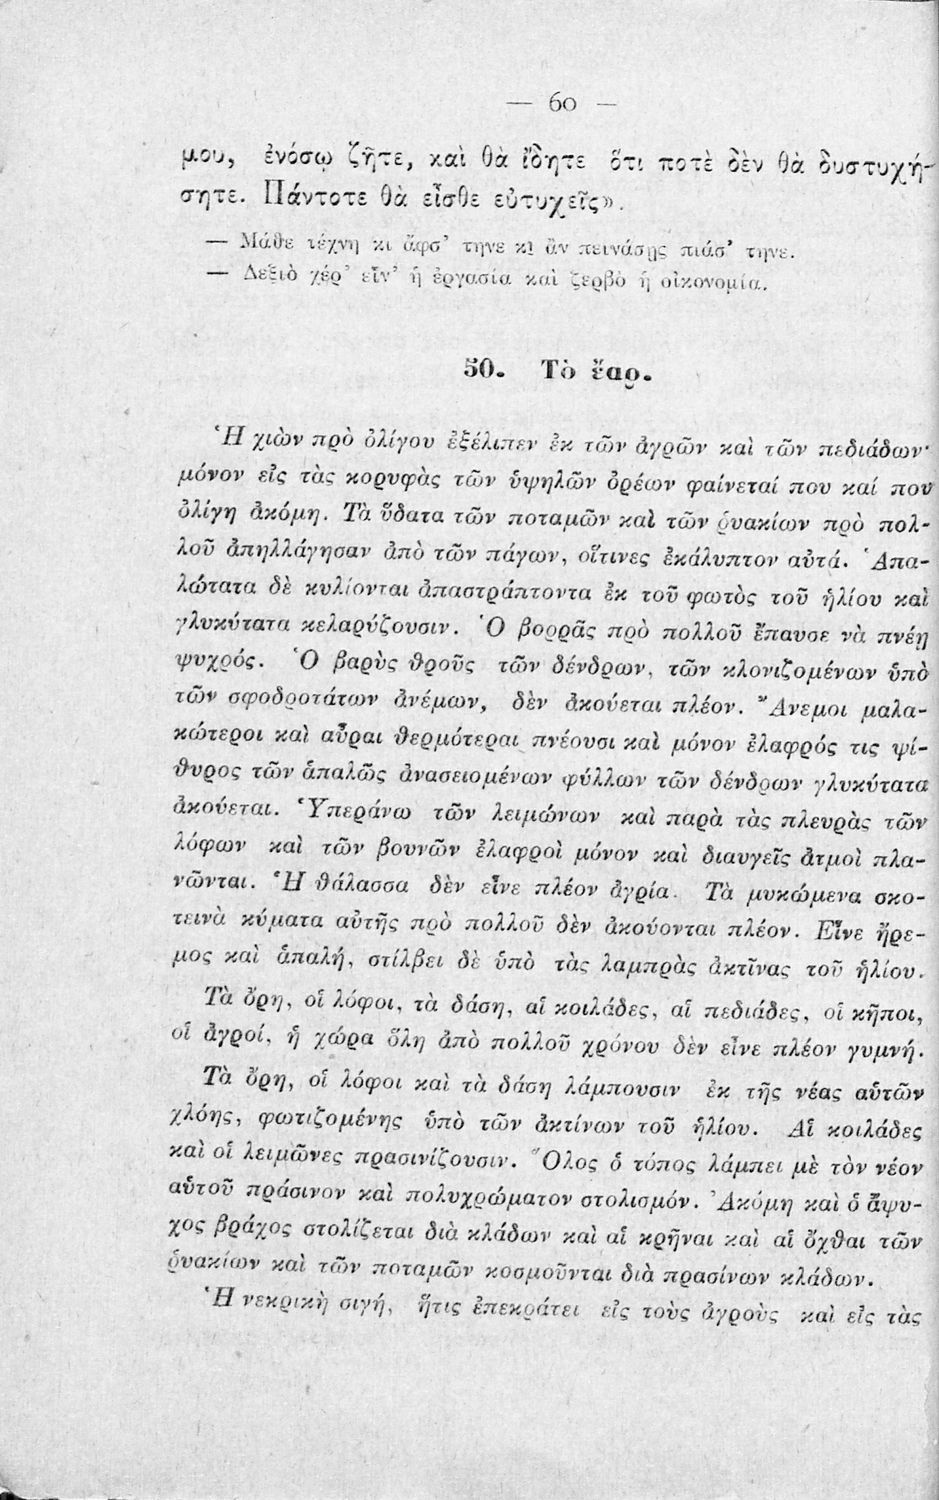 — 60 —
μου, ἐνόσῳ ζῆτε, καὶ θὰ ἴδητε ὅτι ποτὲ δὲν θὰ δυστυχή-
σητε. Πάντοτε θὰ εἶσθε εὐτυχεῖς».
— Μάθε τέχνη κι ἄφσ' τηνε κι ἂν πεινάσῃς πιάσ' τηνε.
— Δεξιὸ χέρ' εἶν' ἡ ἐργασία καὶ ζερβὸ ἡ οἰκονομία.
50. Τὸ ἔαρ.
Ἡ χιὼν πρὸ ὀλίγου ἐξέλιπεν ἐκ τῶν ἀγρῶν καὶ τῶν πεδιάδων·
μόνον εἰς τὰς κορυφὰς τῶν ὑψηλῶν ὀρέων φαίνεταί που καί που
ὀλίγη ἀκόμη. Τὰ ὕδατα τῶν ποταμῶν καὶ τῶν ῥυακίων πρὸ πολ-
λοῦ ἀπηλλάγησαν ἀπὸ τῶν πάγων, οἵτινες ἐκάλυπτον αὐτά. Ἁπα-
λώτατα δὲ κυλίονται ἀπαστράπτοντα ἐκ τοῦ φωτὸς τοῦ ἡλίου καὶ
γλυκύτατα κελαρύζουσιν. Ὁ βορρᾶς πρὸ πολλοῦ ἔπαυσε νὰ πνέῃ
ψυχρός. Ὁ βαρὺς θροῦς τῶν δένδρων, τῶν κλονιζομένων ὑπὸ
τῶν σφοδροτάτων ἀνέμων, δὲν ἀκούεται πλέον. Ἄνεμοι μαλα-
κώτεροι καὶ αὖραι θερμότεραι πνέουσι καὶ μόνον ἐλαφρός τις ψί-
θυρος τῶν ἁπαλῶς ἀνασειομένων φύλλων τῶν δένδρων γλυκύτατα
ἀκούεται. Ὑπεράνω τῶν λειμώνων καὶ παρὰ τὰς πλευρὰς τῶν
λόφων καὶ τῶν βουνῶν ἐλαφροὶ μόνον καὶ διαυγεῖς ἀτμοὶ πλα-
νῶνται. Ἡ θάλασσα δὲν εἶνε πλέον ἀγρία. Τὰ μυκώμενα σκο-
τεινὰ κύματα αὐτῆς πρὸ πολλοῦ δὲν ἀκούονται πλέον. Εἶνε ἤρε-
μος καὶ ἁπαλή, στίλβει δὲ ὑπὸ τὰς λαμπρὰς ἀκτῖνας τοῦ ἡλίου.
Τὰ ὄρη, οἱ λόφοι, τὰ δάση, αἱ κοιλάδες, αἱ πεδιάδες, οἱ κῆποι,
οἱ ἀγροί, ἡ χώρα ὅλη ἀπὸ πολλοῦ χρόνου δὲν εἶνε πλέον γυμνή.
Τὰ ὄρη, οἱ λόφοι καὶ τὰ δάση λάμπουσιν ἐκ τῆς νέας αὑτῶν
χλόης, φωτιζομένης ὑπὸ τῶν ἀκτίνων τοῦ ἡλίου. Αἱ κοιλάδες
καὶ οἱ λειμῶνες πρασινίζουσιν. Ὅλος ὁ τόπος λάμπει μὲ τὸν νέον
αὑτοῦ πράσινον καὶ πολυχρώματον στολισμόν. Ἀκόμη καὶ ὁ ἄψυ-
χος βράχος στολίζεται διὰ κλάδων καὶ αἱ κρῆναι καὶ αἱ ὄχθαι τῶν
ῥυακίων καὶ τῶν ποταμῶν κοσμοῦνται διὰ πρασίνων κλάδων.
Ἡ νεκρικὴ σιγή, ἥτις ἐπεκράτει εἰς τοὺς ἀγροὺς καὶ εἰς τὰς